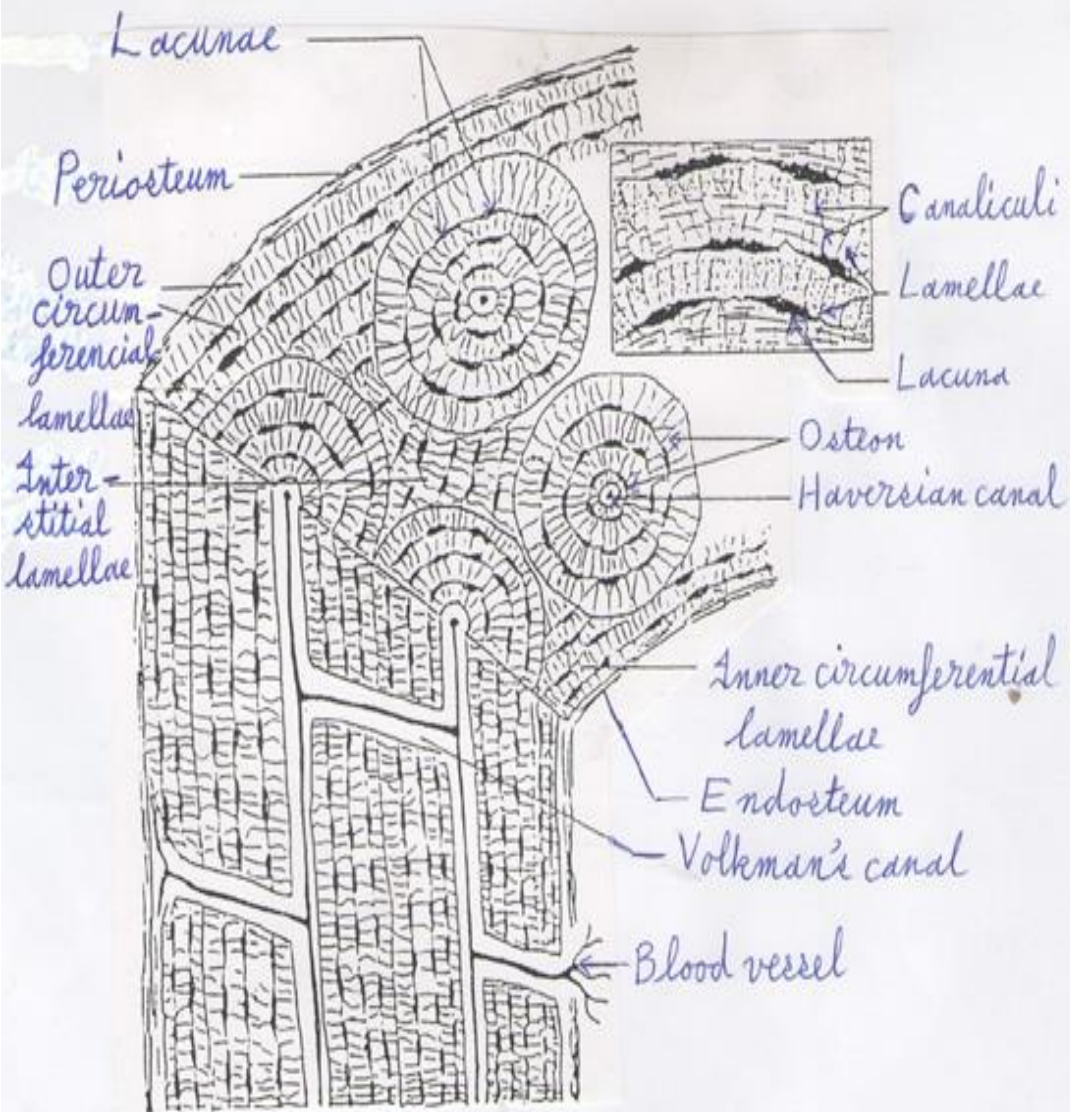 Lacunae
Periosteum
Outer
circum-
ferencial
lamellae
Inter-
stitial
lamellae
Canaliculi
Lamellae
Lacuna
Osteon
Haversian canal
Inner circumferential
lamellae
Endosteum
Volkman's canal
Blood vessel